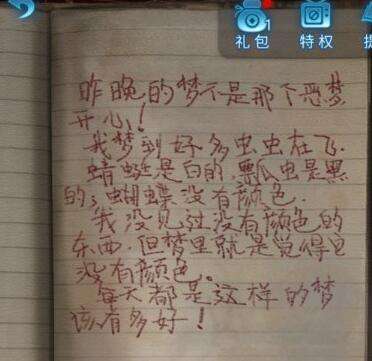 1
礼包
特权
昨晚的梦不是那个恶梦
开心！
我梦到好多虫虫在飞.
蜻蜓是白的,瓢虫是黑
的；蝴蝶没有颜色.
我没见过没有颜色的
东西.但梦里就是觉得它
没有颜色。
每天都是这样的梦
该有多好！